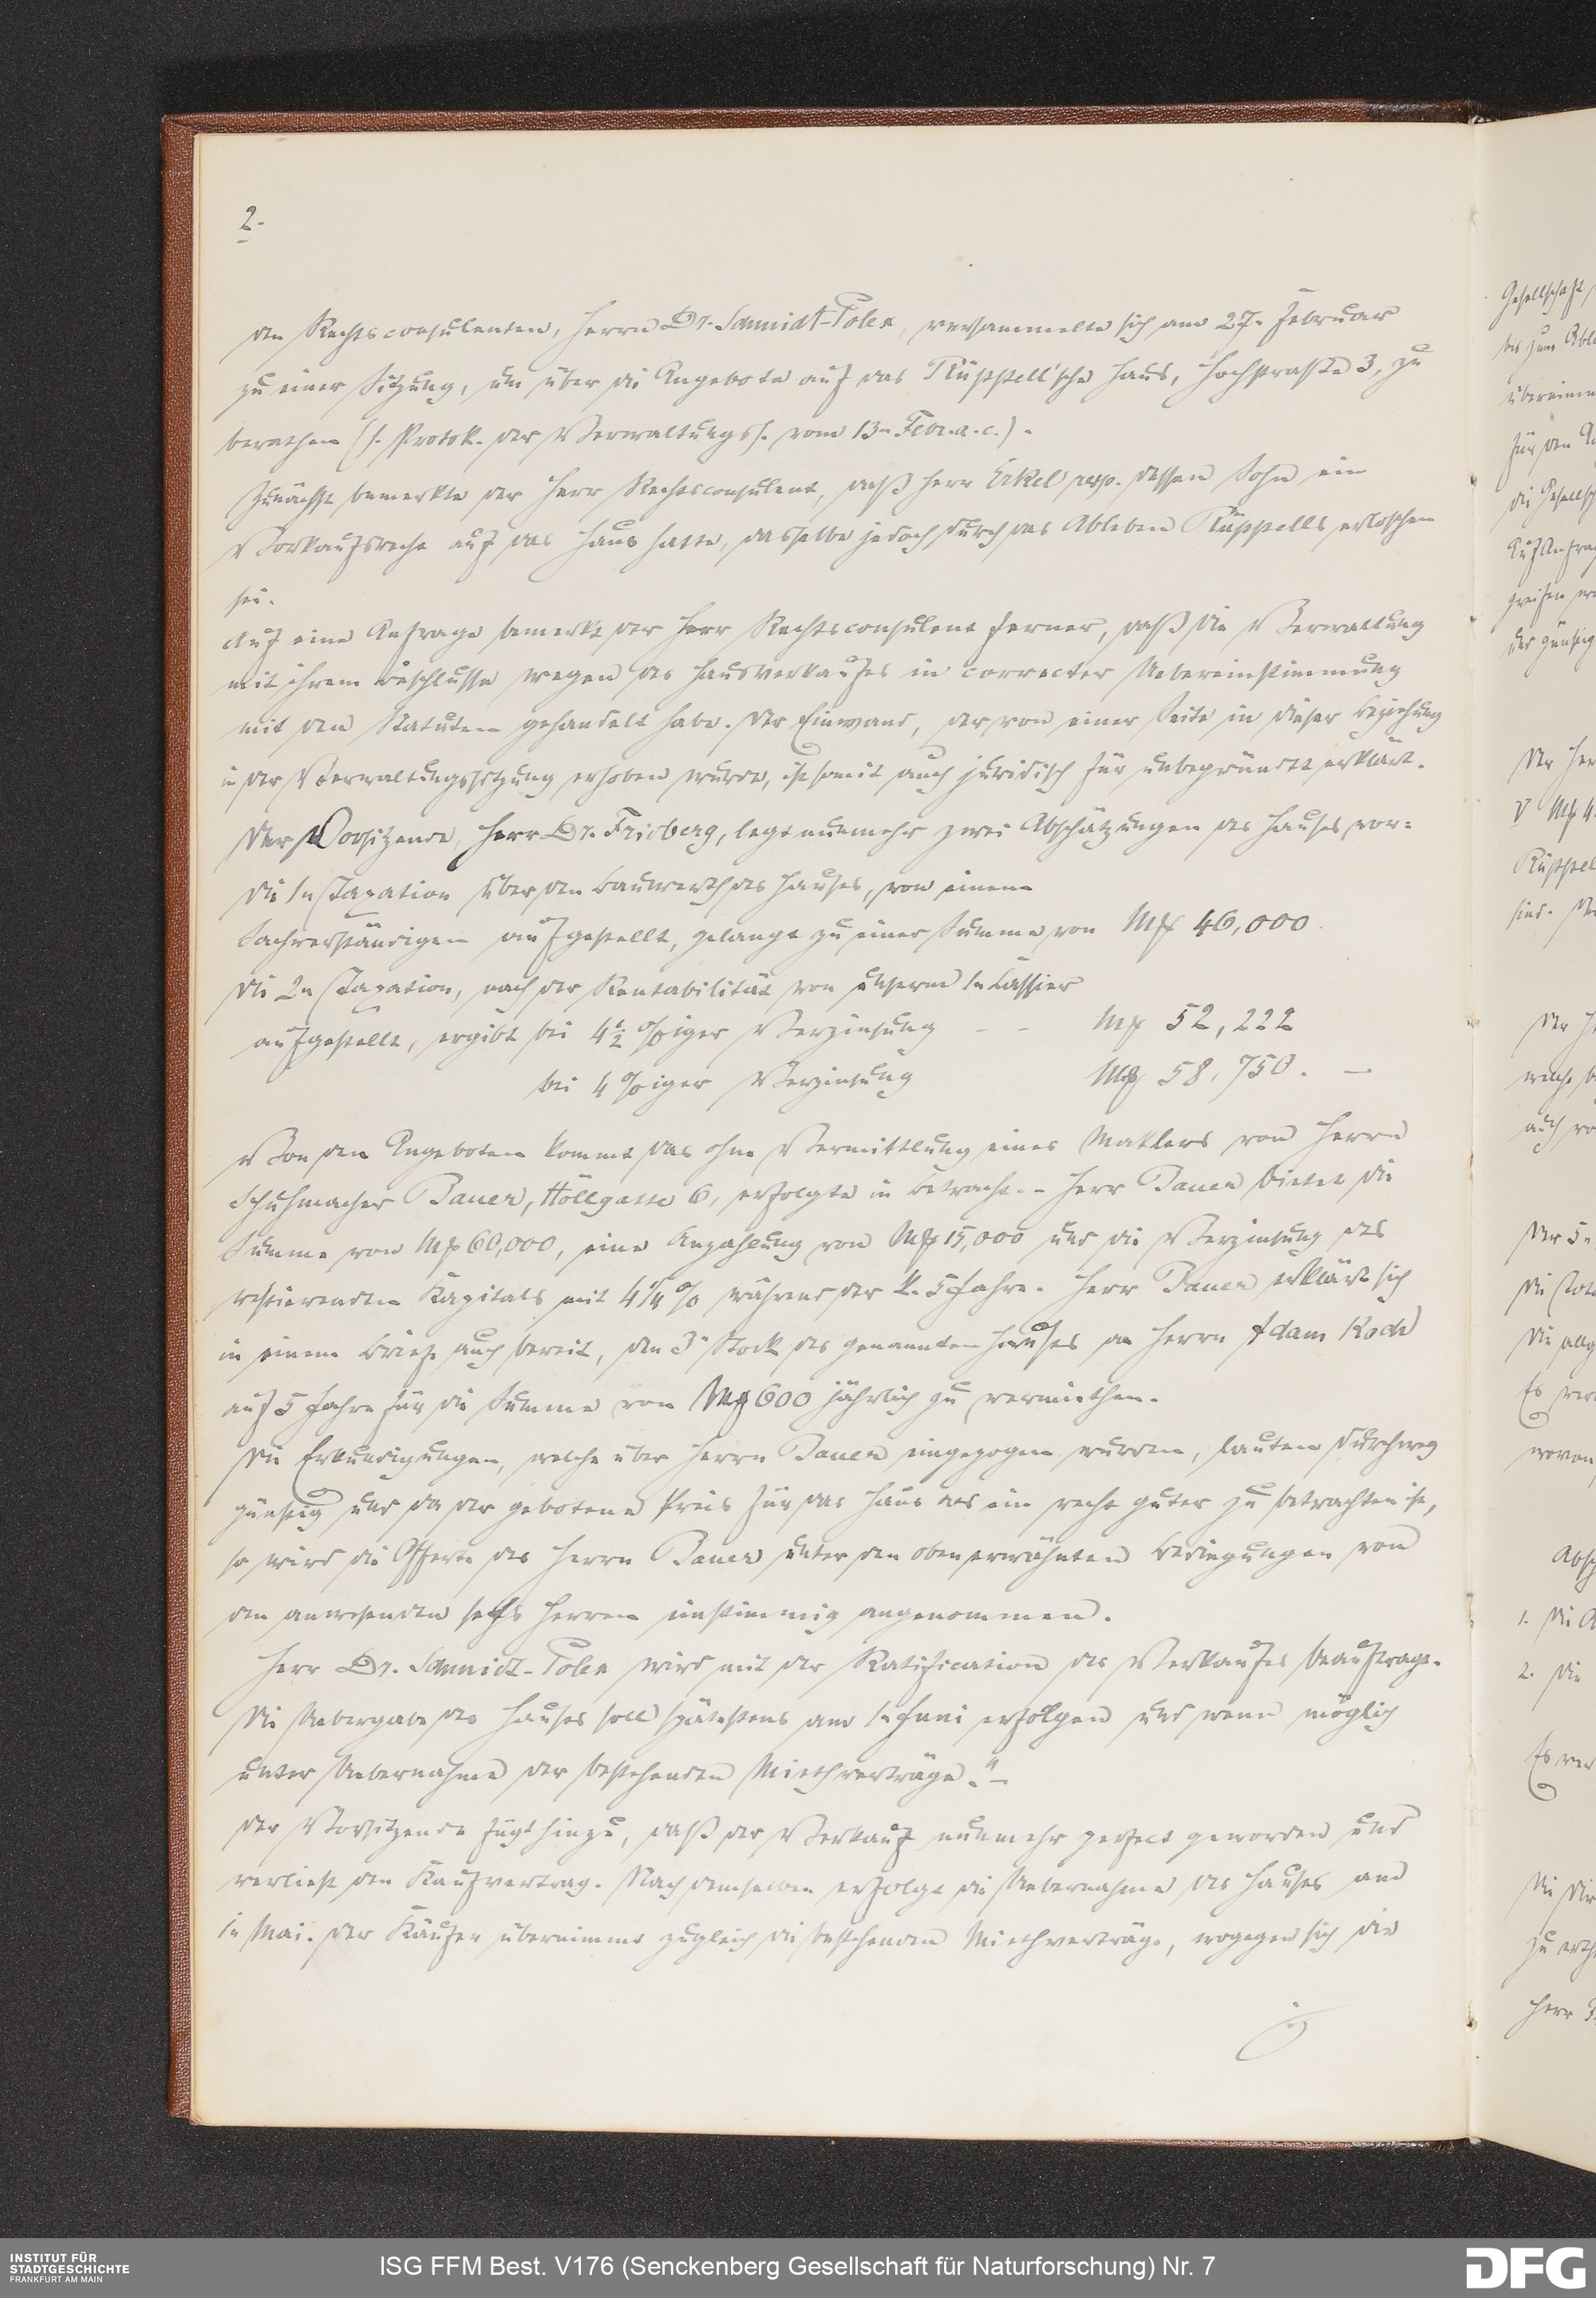 2.
den Rechtsconsulenten, Herrn Dr. Schmidt-Polex, versammelte sich am 27. Februar
zu einer Sitzung, um über die Angebote auf das Rüppell'sche Haus, Hochstrasse 3, zu
berathen (s. Protok. der Verwaltungss. vom 13n Febr. a. c.).
Zunächst bemerkte der Herr Rechtsconsulent, daß Herr Erkel resp. dessen Sohn ein
Vorkaufsrecht auf das Haus hatte, dasselbe jedoch durch das Ableben Rüppells erloschen
sei.
Auf eine Anfrage bemerkt der Herr Rechtsconsulent ferner, daß die Verwaltung
mit ihrem Beschlusse wegen des Hausverkaufes in correcter Uebereinstimmung
mit den Statuten gehandelt habe. Der Einwand, der von einer Seite in dieser Beziehung
in der Verwaltungssitzung erhoben wurde, ist somit auch juridisch für unbegründet erklärt.
Der Vorsitzende, Herr Dr. Fridberg, legt nunmehr zwei Abschätzungen des Hauses vor:
Die 1n Taxation über den Bauwerth des Hauses, von einem
Sachverständigen aufgestellt, gelangt zu einer Summe von Mk 46,000.
Die 2n Taxation, nach der Rentabilität von unserm 1n Cassier
aufgestellt, ergibt bei 4½ %iger Verzinsung - - Mk 52,222
bei 4 %iger Verzinsung Mk 58,750. —
Von den Angeboten kommt das ohne Vermittlung eines Maklers von Herrn
Schuhmacher Bauer, Höllgasse 6, erfolgte in Betracht. - Herr Bauer bietet die
Summe von Mk 60,000, eine Anzahlung von Mk 15,000 und die Verzinsung des
restierenden Kapitals mit 4¼ % während der k. 5 Jahre. Herr Bauer erklärt sich
in einem Briefe auch bereit, den 3n Stock des genannten Hauses an Herrn Adam Koch
auf 5 Jahre für die Summe von Mk 600 jährlich zu vermiethen.
Die Erkundigungen, welche über Herrn Bauer eingezogen wurden, lauten durchweg
günstig und da der gebotene Preis für das Haus als ein recht guter zu betrachten ist,
so wird die Offerte des Herrn Bauer unter den oben erwähnten Bedingungen von
den anwesenden sechs Herren einstimmig angenommen.
Herr Dr. Schmidt-Polex wird mit der Ratification des Verkaufes beauftragt.
Die Uebergabe des Hauses soll spätestens am 1n Juni erfolgen und wenn möglich
unter Uebernahme der bestehenden Miethverträge." -
Der Vorsitzende fügt hinzu, daß der Verkauf nunmehr perfect geworden und
verliest den Kaufvertrag. Nach demselben erfolgt die Uebernahme des Hauses am
1n Mai. Der Käufer übernimmt zugleich die bestehenden Miethverträge, wogegen sich die
Gesellschaft
INSTITUT FÜR
STADTGESCHICHTE
FRANKFURT AM MAIN
ISG FFM Best. V176 (Senckenberg Gesellschaft für Naturforschung) Nr. 7
DFG